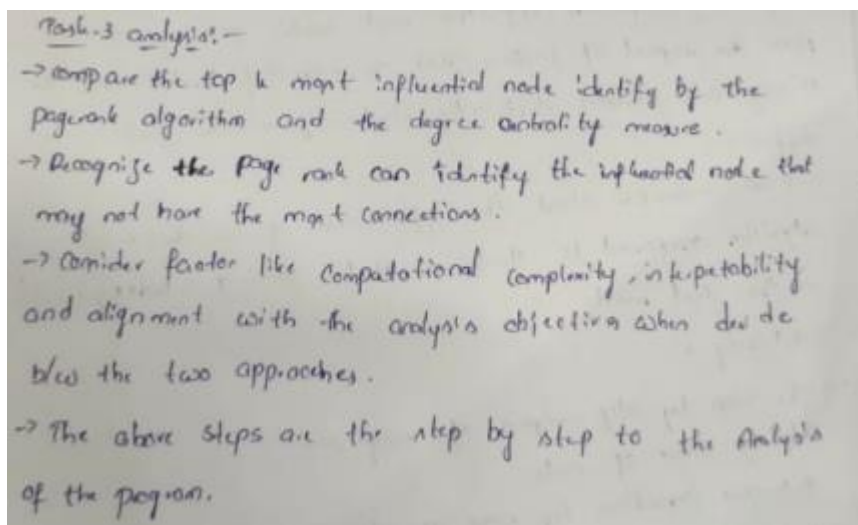 Task-3 analysis:-
→ compare the top k most influential node identify by the
pagerank algorithm and the degree centrality measure.
→ Recognize the page rank can identify the influential node that
may not have the most connections.
→ Consider factor like computational complexity, interpetability
and alignment with the analysis objective when decide
b/w the two approaches.
→ The above steps are the step by step to the Analysis
of the program.